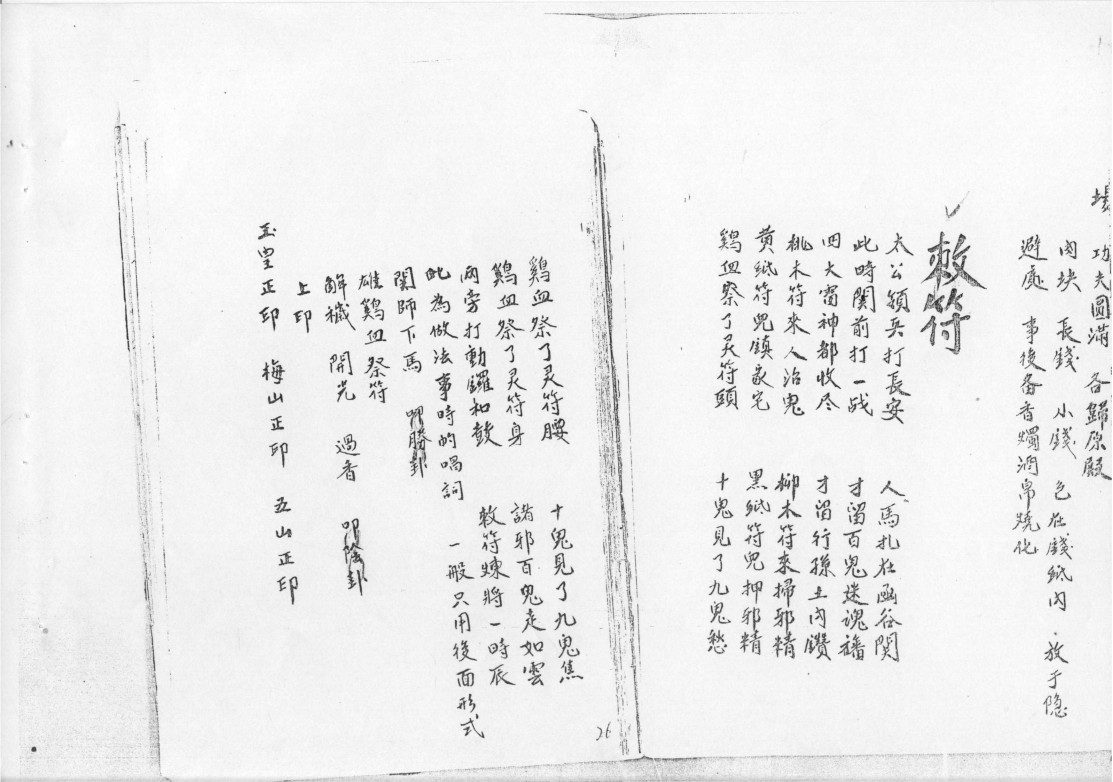 場 功夫圓滿 各歸原殿
肉块 長錢 小錢 包在錢紙内．放于隐
避處 事後备香燭酒帛燒化
敕符
太公領兵打長安 人馬扎在函谷関
此時関前打一战 才留百鬼迷魂旛
四大雷神都收尽 才留行孫土内鑽
桃木符來人治鬼 柳木符來掃邪精
黄紙符兜鎮家宅 黑紙符兜押邪精
鷄血祭了灵符頭 十鬼見了九鬼愁
鷄血祭了灵符腰 十鬼見了九鬼焦
鷄血祭了灵符身 諸邪百鬼走如雲
兩旁打動鑼和鼓 敕符煉將一時辰
此為做法事時的唱詞 一般只用後面形式
関師下馬 叩勝卦
雄鷄血祭符
解穢 開光 過香 叩陰卦
上印
玉皇正印 梅山正印 五山正印
26